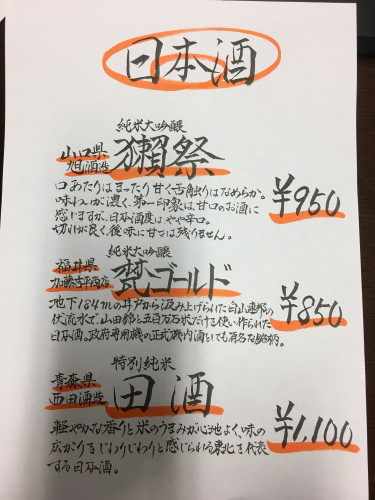 日本酒
純米大吟醸
山口県
旭酒造
獺祭
口あたりはまったり甘く舌触りはなめらか。
味わいが濃く、第一印象は甘口のお酒に
感じますが、日本酒度はやや辛口。
切れが良く後味に甘さは残りません。
¥950
純米大吟醸
福井県
加藤吉平商店
梵ゴールド
地下184mの井戸から汲み上げられた白山連邦の
伏流水で、山田錦と五百万石米だけを使い作られた
日本酒。政府専用機の正式機内酒としても有名な銘柄。
¥850
特別純米
青森県
西田酒造
田酒
軽やかな香りと米のうまみが心地よく、味の
広がりをじわりじわりと感じられる東北を代表
する日本酒。
¥1,100